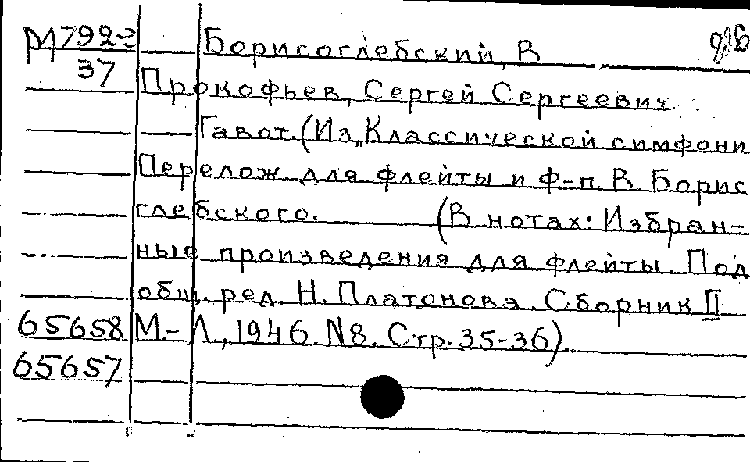 М 792-3 Борисоглебский, В
37 Прокофьев, Сергей Сергеевич
Гавот. (Из „Классической симфони
Перелож. для флейты и ф-п. В. Борис
глебского. (В нотах: Избран-
ные произведения для флейты. Под
общ. ред. Н. Платонова. Сборник II
65658 М.-Л., 1946. N8. Стр. 35-36).
65657